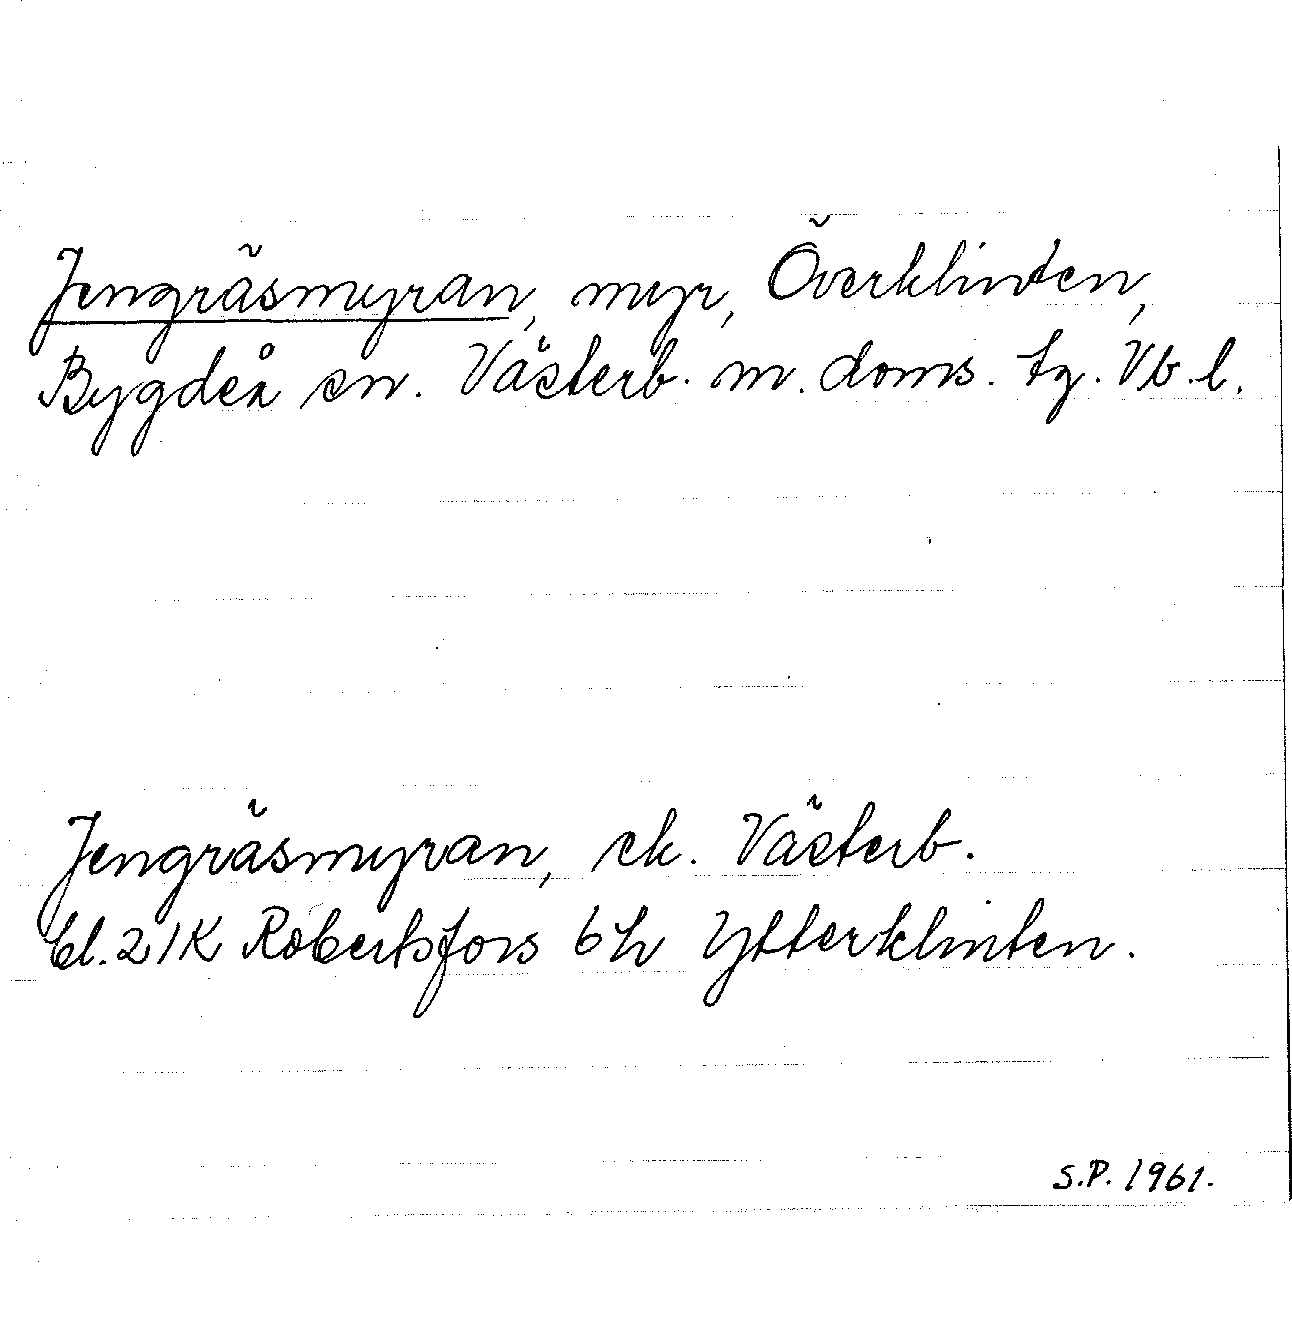 Jengräsmyran, myr, Överklinten,
Bygdeå sn. Västerb. m. doms. tg. Vb. l.
Jengräsmyran, ek. Västerb.
bl. 21K Robertsfors 6h Ytterklinten.
S.P. 1961.